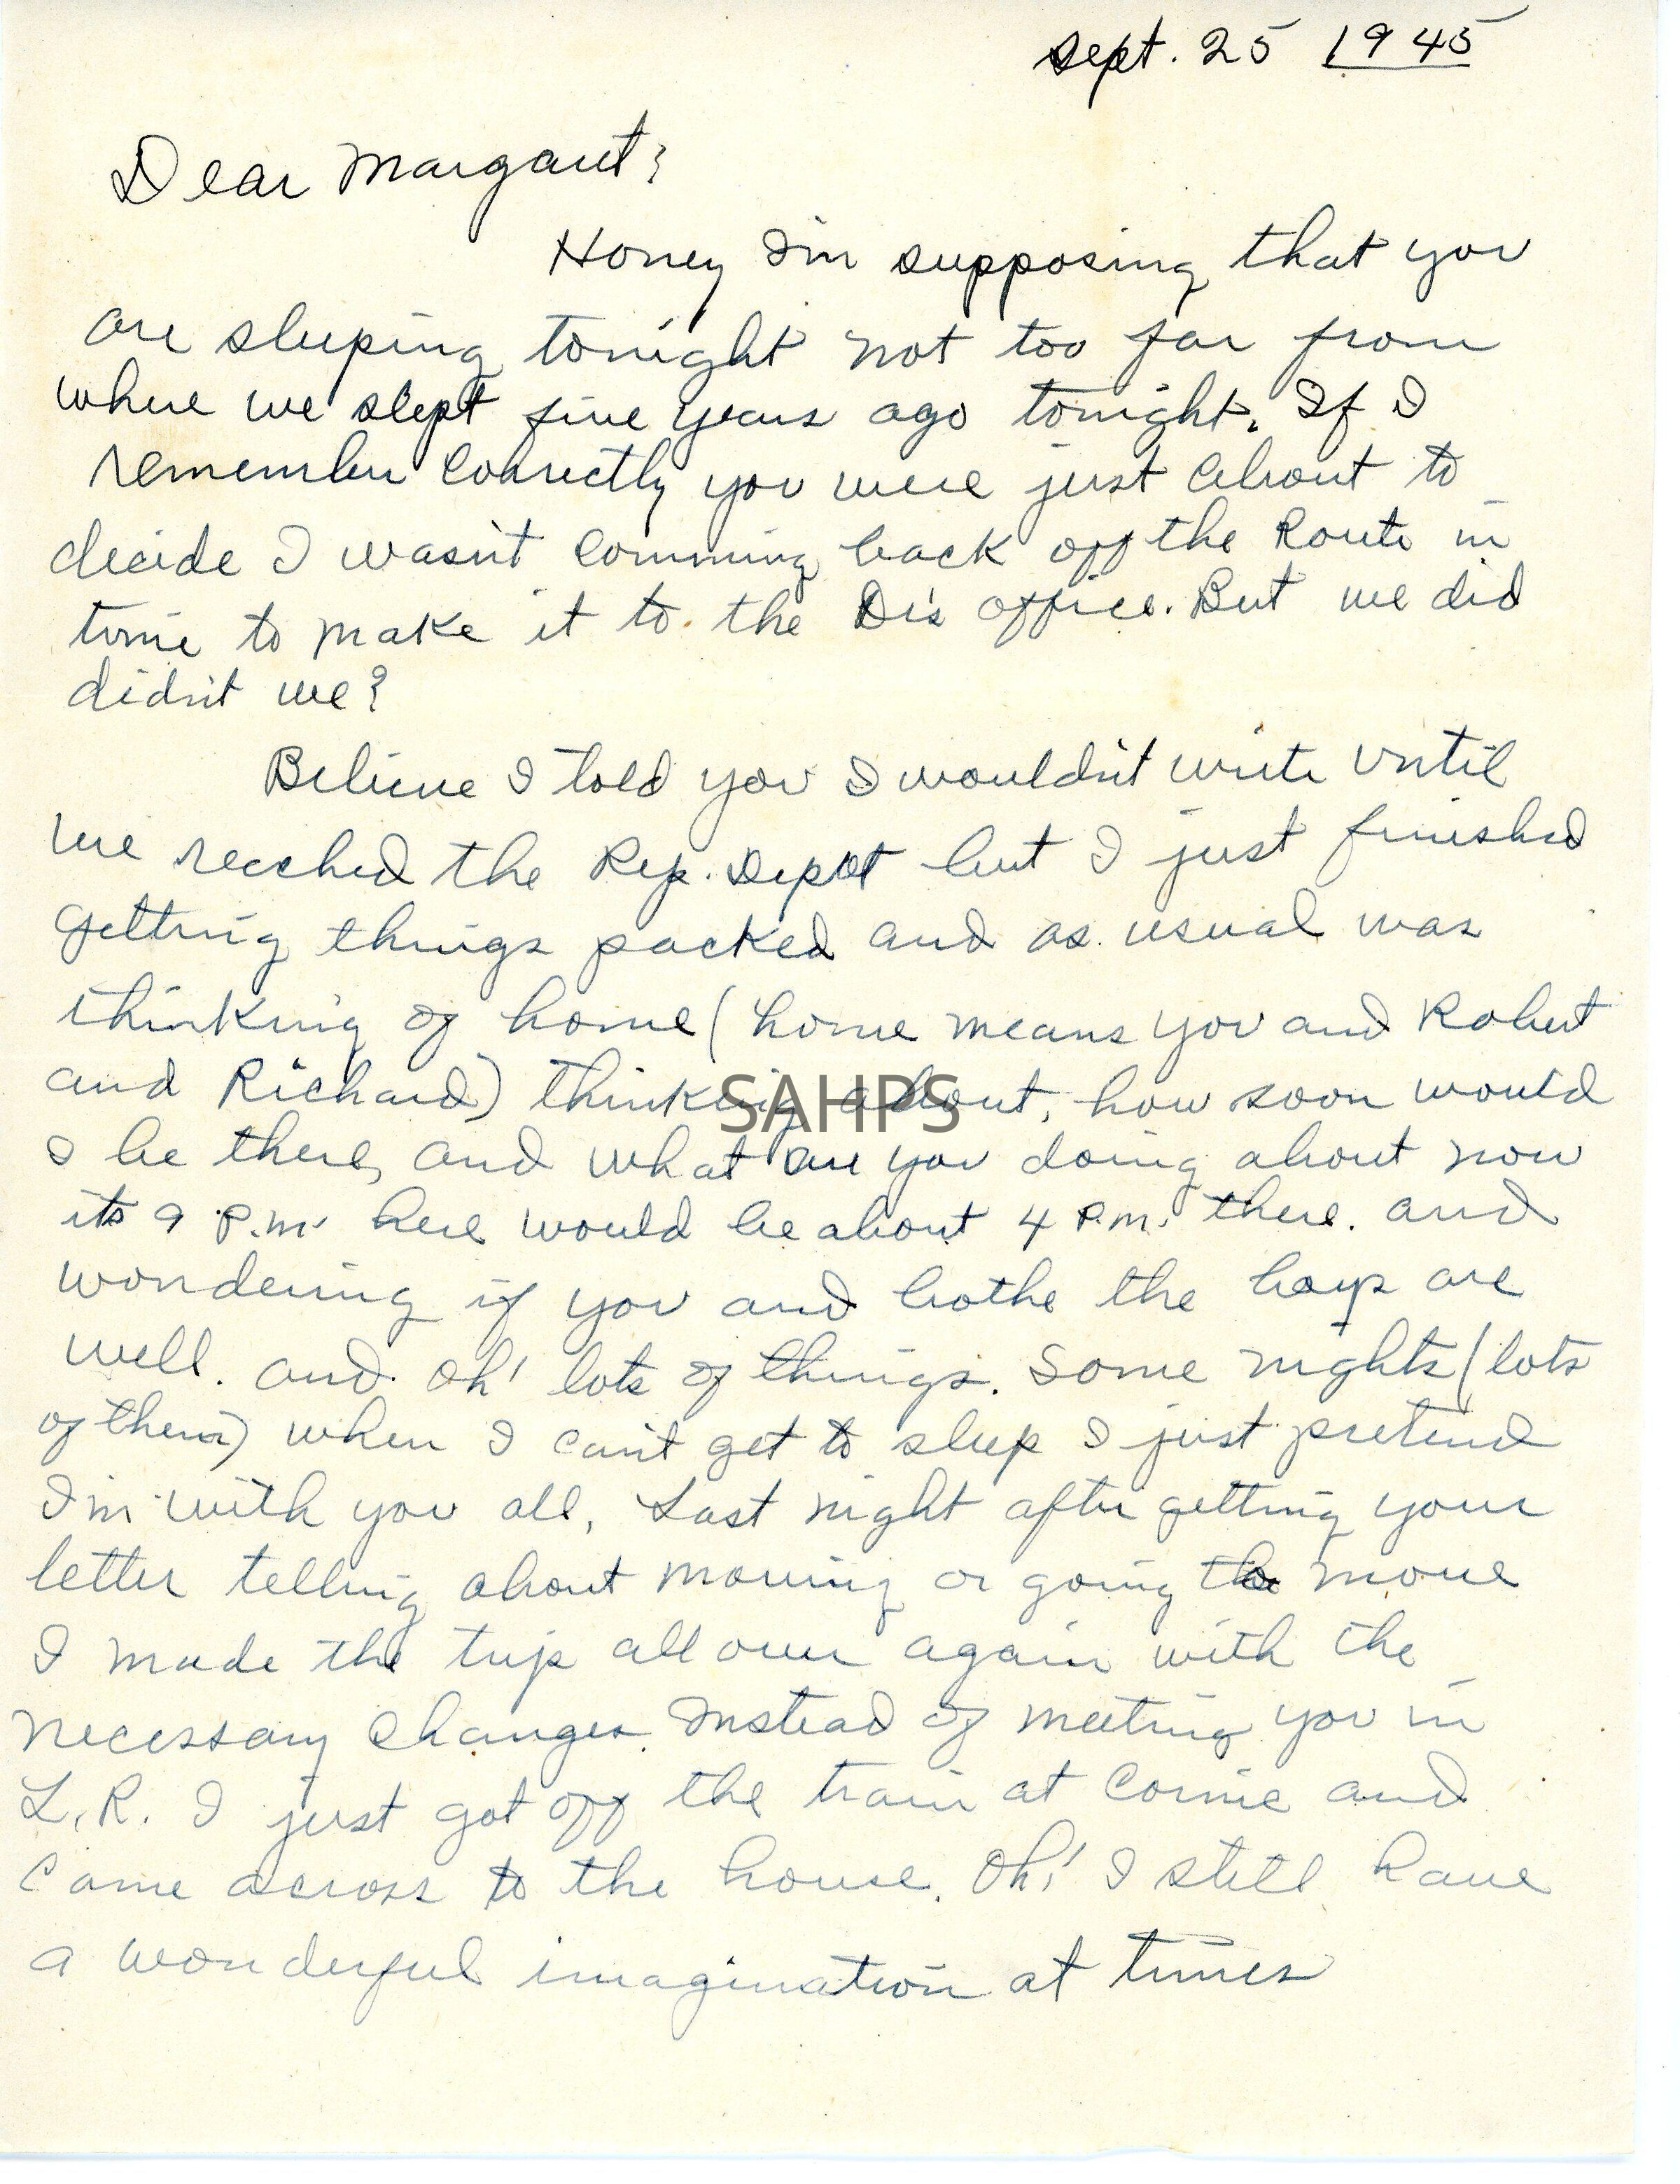 Sept. 25 1945
Dear Margaret:
Honey I'm supposing that you
are sleeping tonight not too far from
where we slept five years ago tonight. If I
remember correctly you were just about to
decide I wasn't comming back off the Route in
time to make it to the Dr's office. But we did
didn't we?
Believe I told you I wouldn't write until
we reached the Rep. Depot but I just finished
getting things packed and as usual was
thinking of home (home means you and Robert
and Richard) thinking about, how soon would
I be there, and what are you doing about now
its 9 P.M. here would be about 4 P.M. there. and
wondering if you and bothe the boys are
well. and oh! lots of things. Some nights (lots
of them) when I can't get to sleep I just pretend
I'm with you all, Last night after getting your
letter telling about moving or going to move
I made the trip all over again with the
necessary changes. Instead of meeting you in
L.R. I just got off the train at Cornie and
came across to the house. Oh! I still have
a wonderful imagination at times
SAHPS